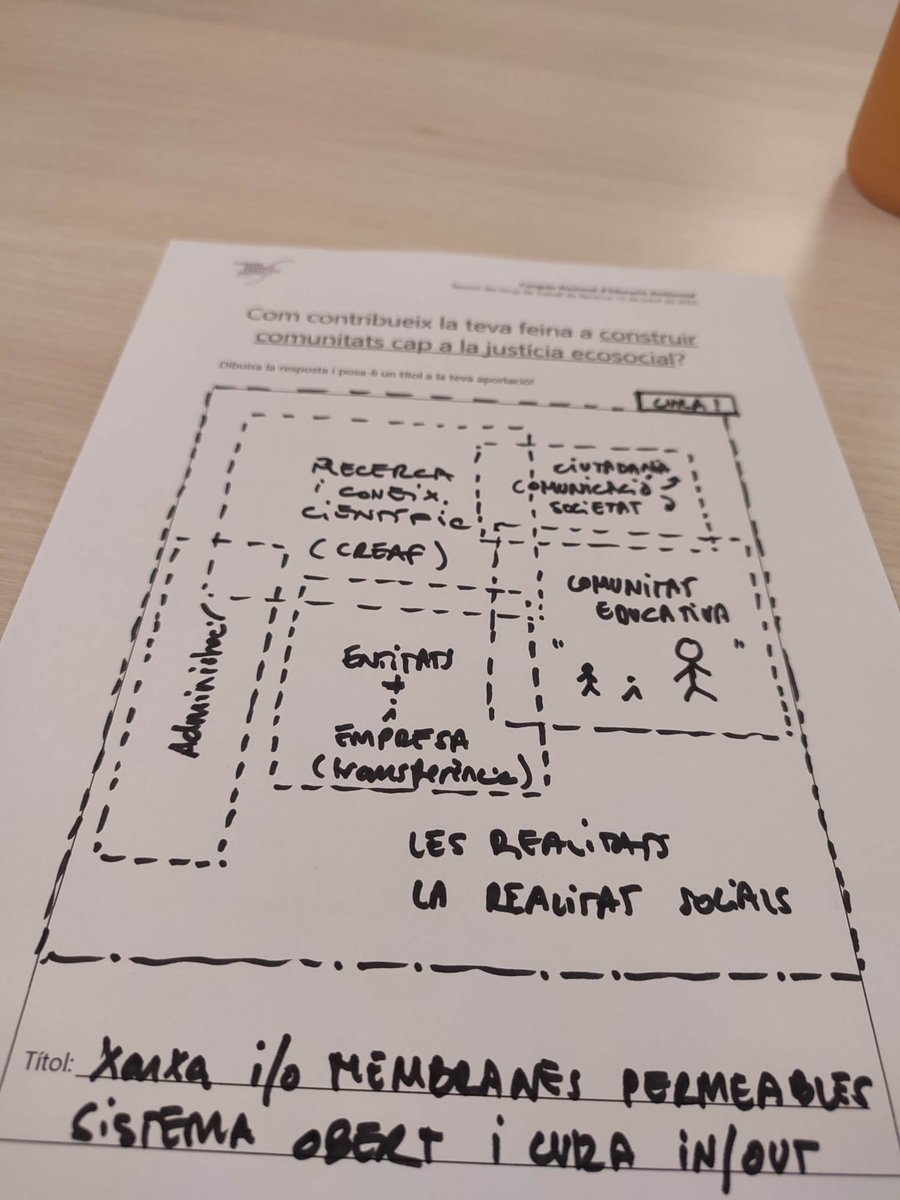 Com contribueix la teva feina a construir
comunitats cap a la justícia ecosocial?
Dibuixa la resposta i posa-li un títol a la teva aportació!
CURA!
RECERCA
i CONEIX.
CIENTÍFIC
(CREAF)
CIUTADANIA
COMUNICACIÓ
SOCIETAT
COMUNITAT
EDUCATIVA
" i "
Administració
ENTITATS
+
i
EMPRESA
(transferència)
LES REALITATS
LA REALITAT SOCIALS
Títol: Xarxa i/o MEMBRANES PERMEABLES
SISTEMA OBERT i CURA IN/OUT